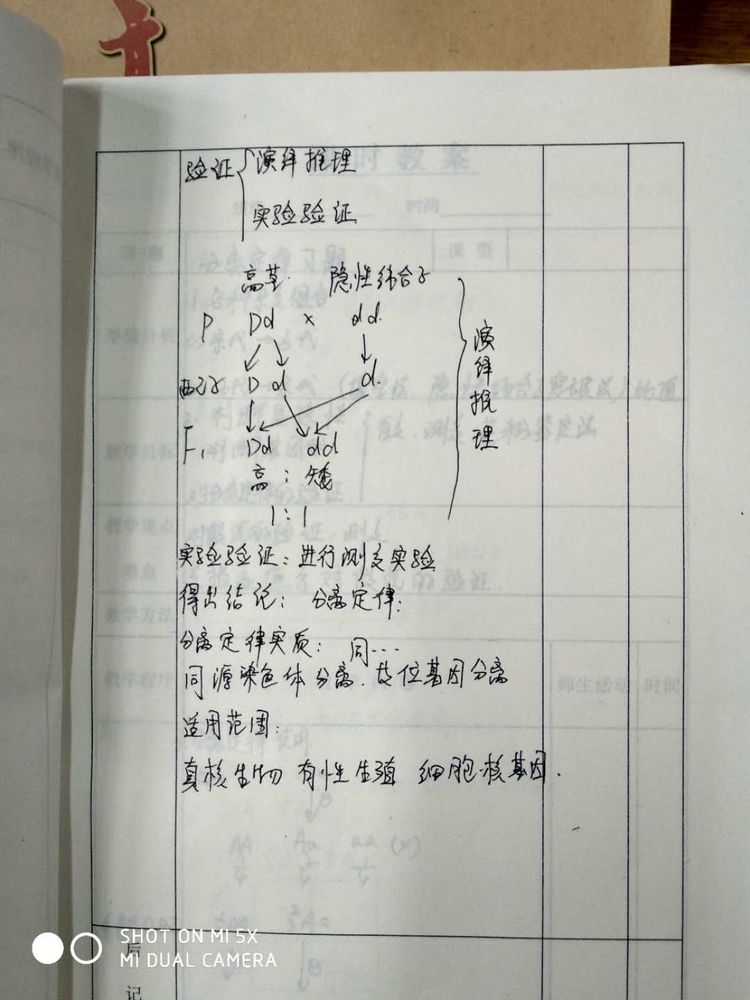 验证 演绎推理
实验验证
高茎 隐性纯合子
P Dd × dd
配子 D d d
F₁ Dd dd
高 : 矮
1 : 1
演绎推理
实验验证:进行测交实验
得出结论: 分离定律:
分离定律实质: 同…
同源染色体分离.等位基因分离
适用范围:
真核生物 有性生殖 细胞核基因.
后记
SHOT ON MI 5X
MI DUAL CAMERA